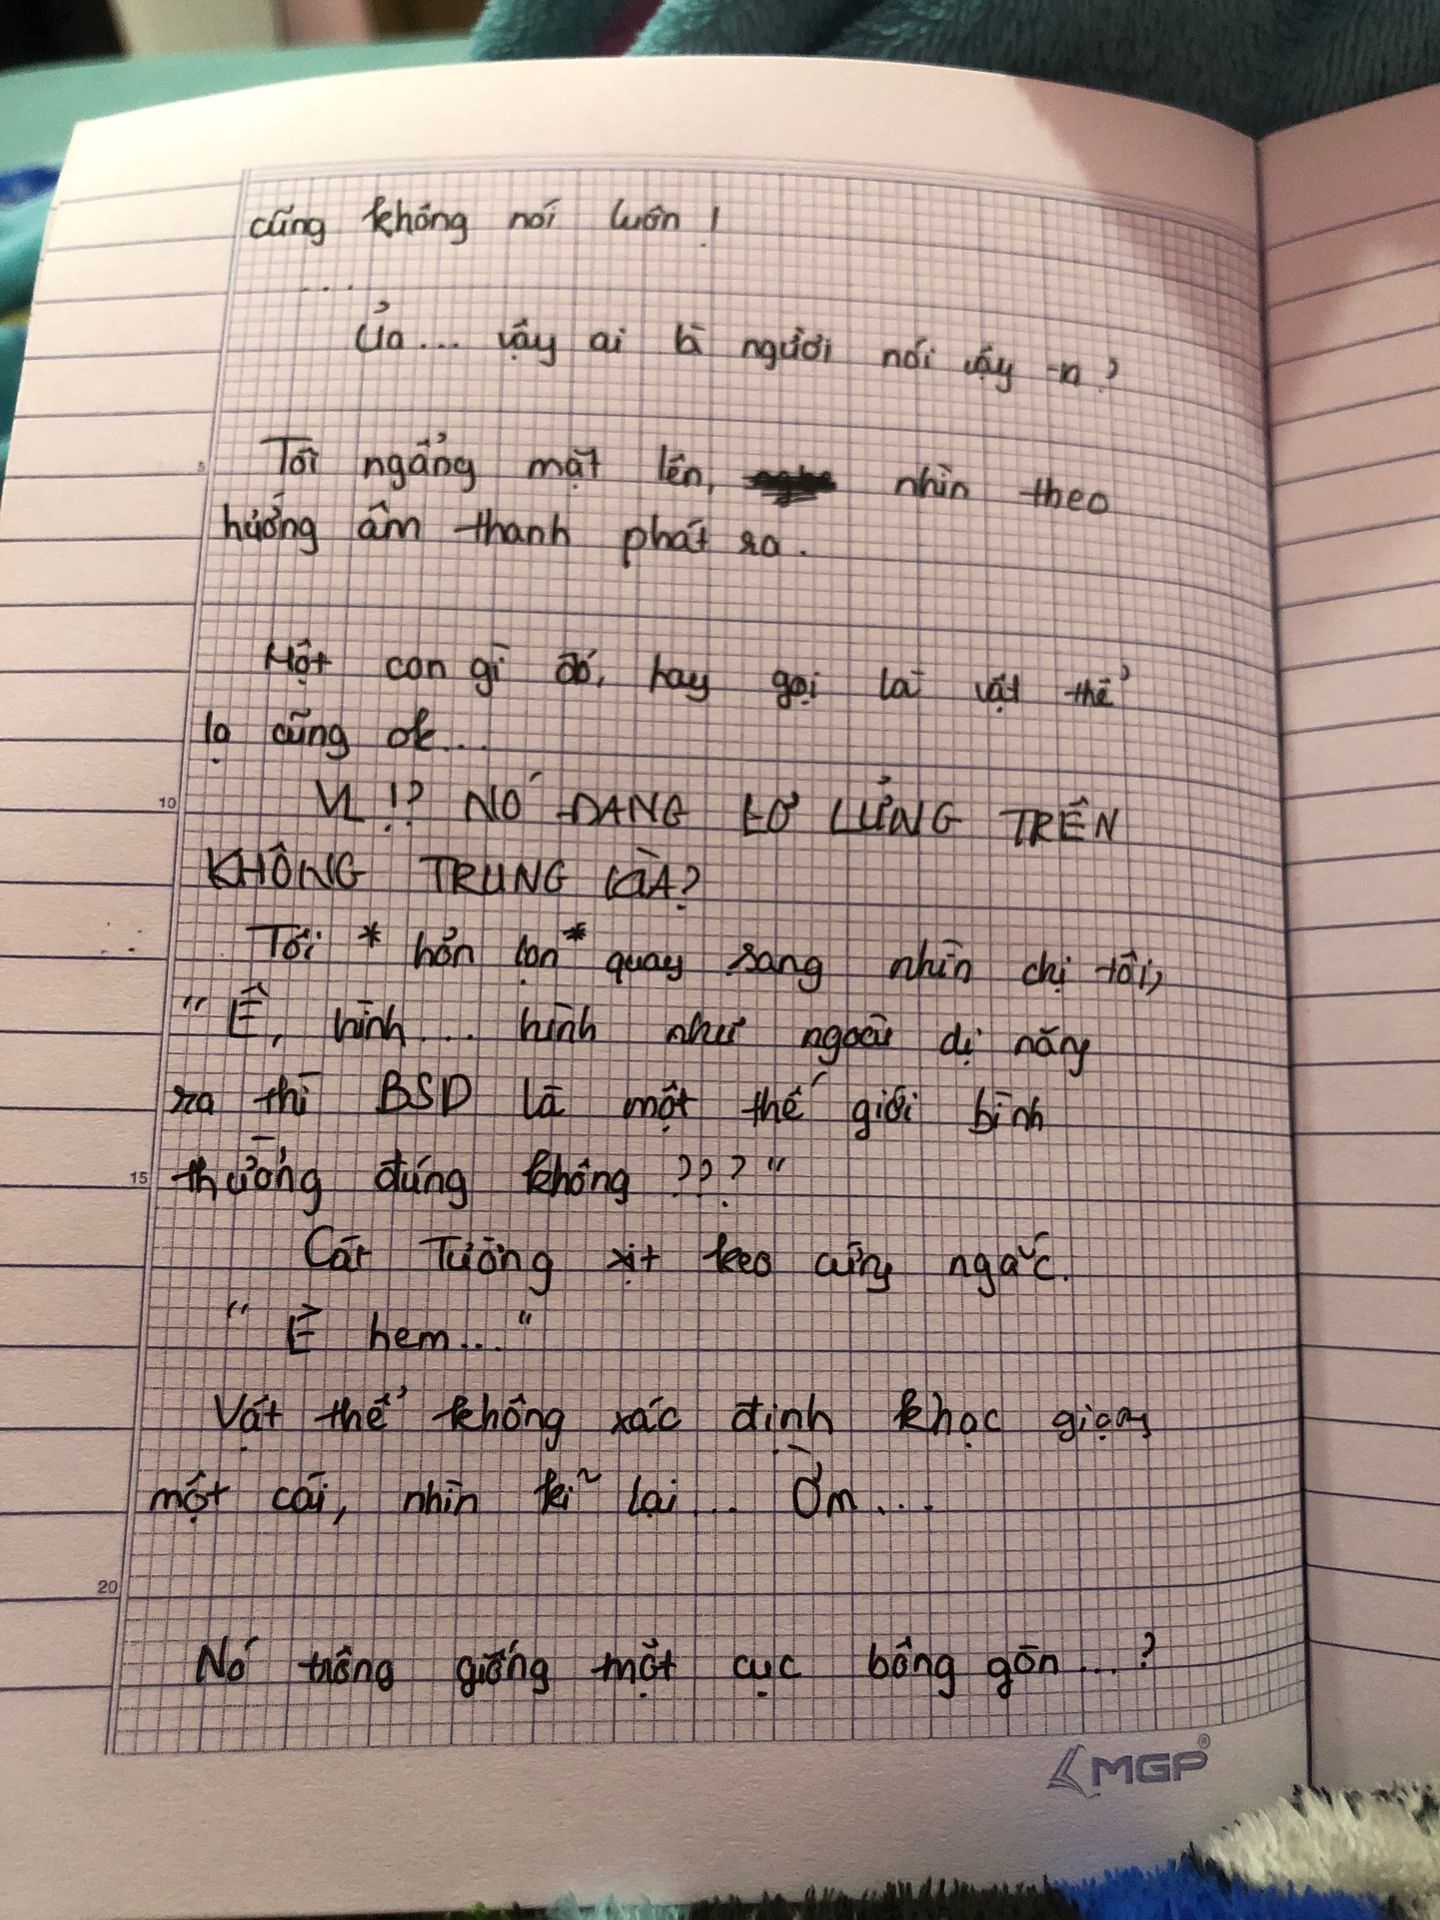 cũng không nói luôn !
....
Ủa... vậy ai là người nói vậy -n ?
5
Tôi ngẩng mặt lên, nhìn theo
hướng âm thanh phát ra.
Một con gì đó, hay gọi là vật thể
lạ cũng ok...
10
VL !? NÓ ĐANG LƠ LỬNG TRÊN
KHÔNG TRUNG KÌA?
Tôi * hỗn lọn * quay sang nhìn chị tôi,
"Ê, hình... hình như ngoài dị năng
ra thì BSD là một thế giới bình
15
thường đúng không ???"
Cát Tường xịt keo cứng ngắc.
"È hem..."
Vật thể không xác định khọc giọng
một cái, nhìn kĩ lại... Ờm...
20
Nó trông giống một cục bông gòn...?
MGP®